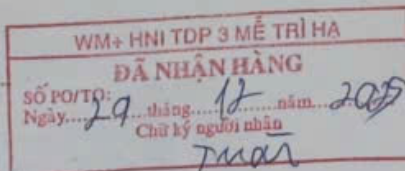 WM+ HNI TDP 3 MỄ TRÌ HẠ
ĐÃ NHẬN HÀNG
SỐ PO/TO:
Ngày....29...tháng....12......năm...2025
Chữ ký người nhận
Tuấn